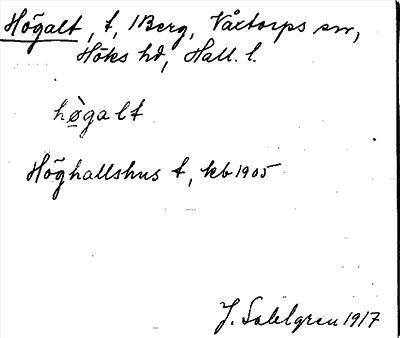 Högalt, t, 1 Berg, Våxtorps sn,
Höks hd, Hall. l.
hø̀galt
Höghallshus t, kb 1905
J. Sahlgren 1917